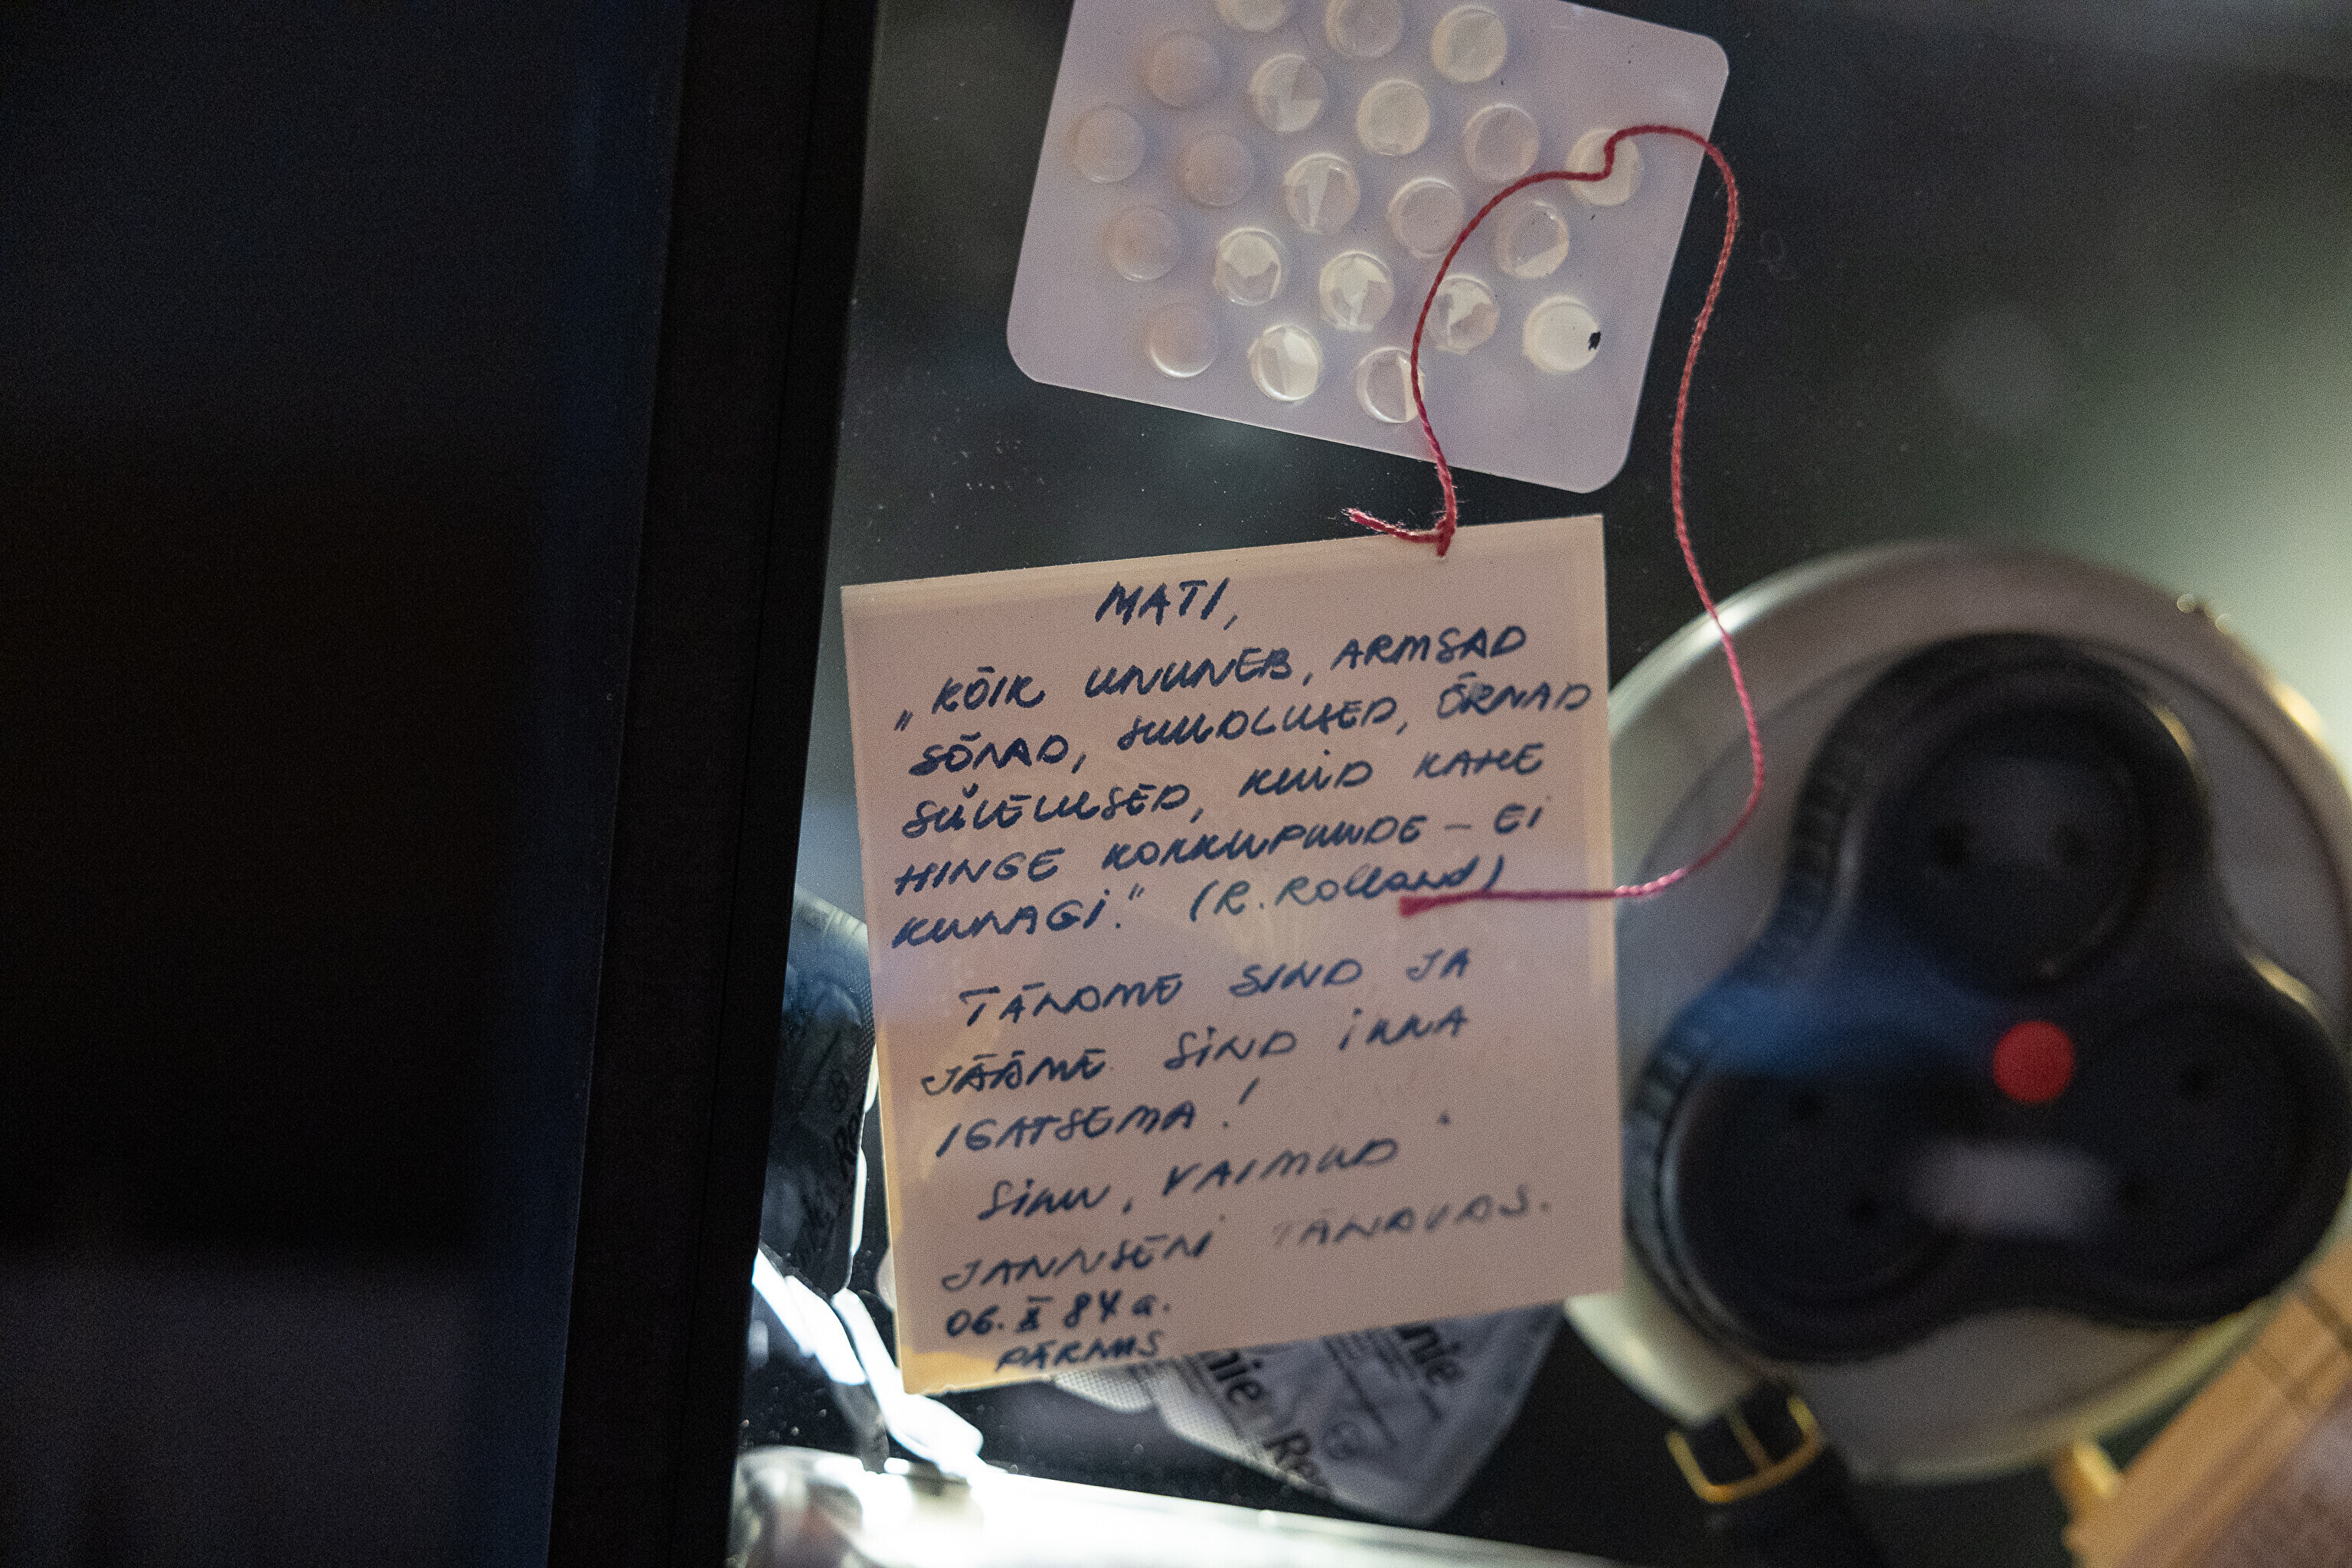 MATI,
„KÕIK UNUNEB, ARMSAD
SÕNAD, SUUDLUSED, ÕRNAD
SÜLELUSED, KUID KAHE
HINGE KOKKUPUUDE – EI
KUNAGI." (R. ROLLAND)
TÄNAME SIND JA
JÄÄME SIND IKKA
IGATSEMA!
SINU, VAIMUD
JANNSENI TÄNAVAS.
06. X 84 a.
PÄRNUS